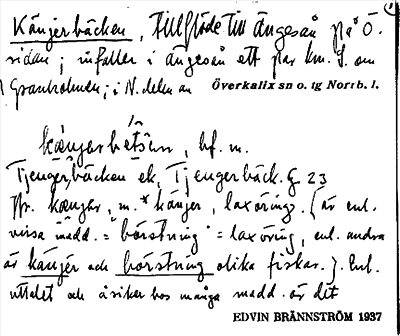 Känjerbäcken, tillflöde till Ängesån på Ö.
sidan; infaller i Ängesån ett par km. S. om
Granholmen; i N. delen av Överkalix sn o. tg Norrb. l.
kænjarbétsün, bf. m.
Tjenger, bäcken ek, Tjengerbäck. G 23
kænjar, m. * känjer, laxöring. (är enl.
vissa medd. = "börstning" = laxöring, enl. andra
är känjer och börstning olika fiskar.). Enl.
uttalet och åsikter hos många medd. är det
EDVIN BRÄNNSTRÖM 1937